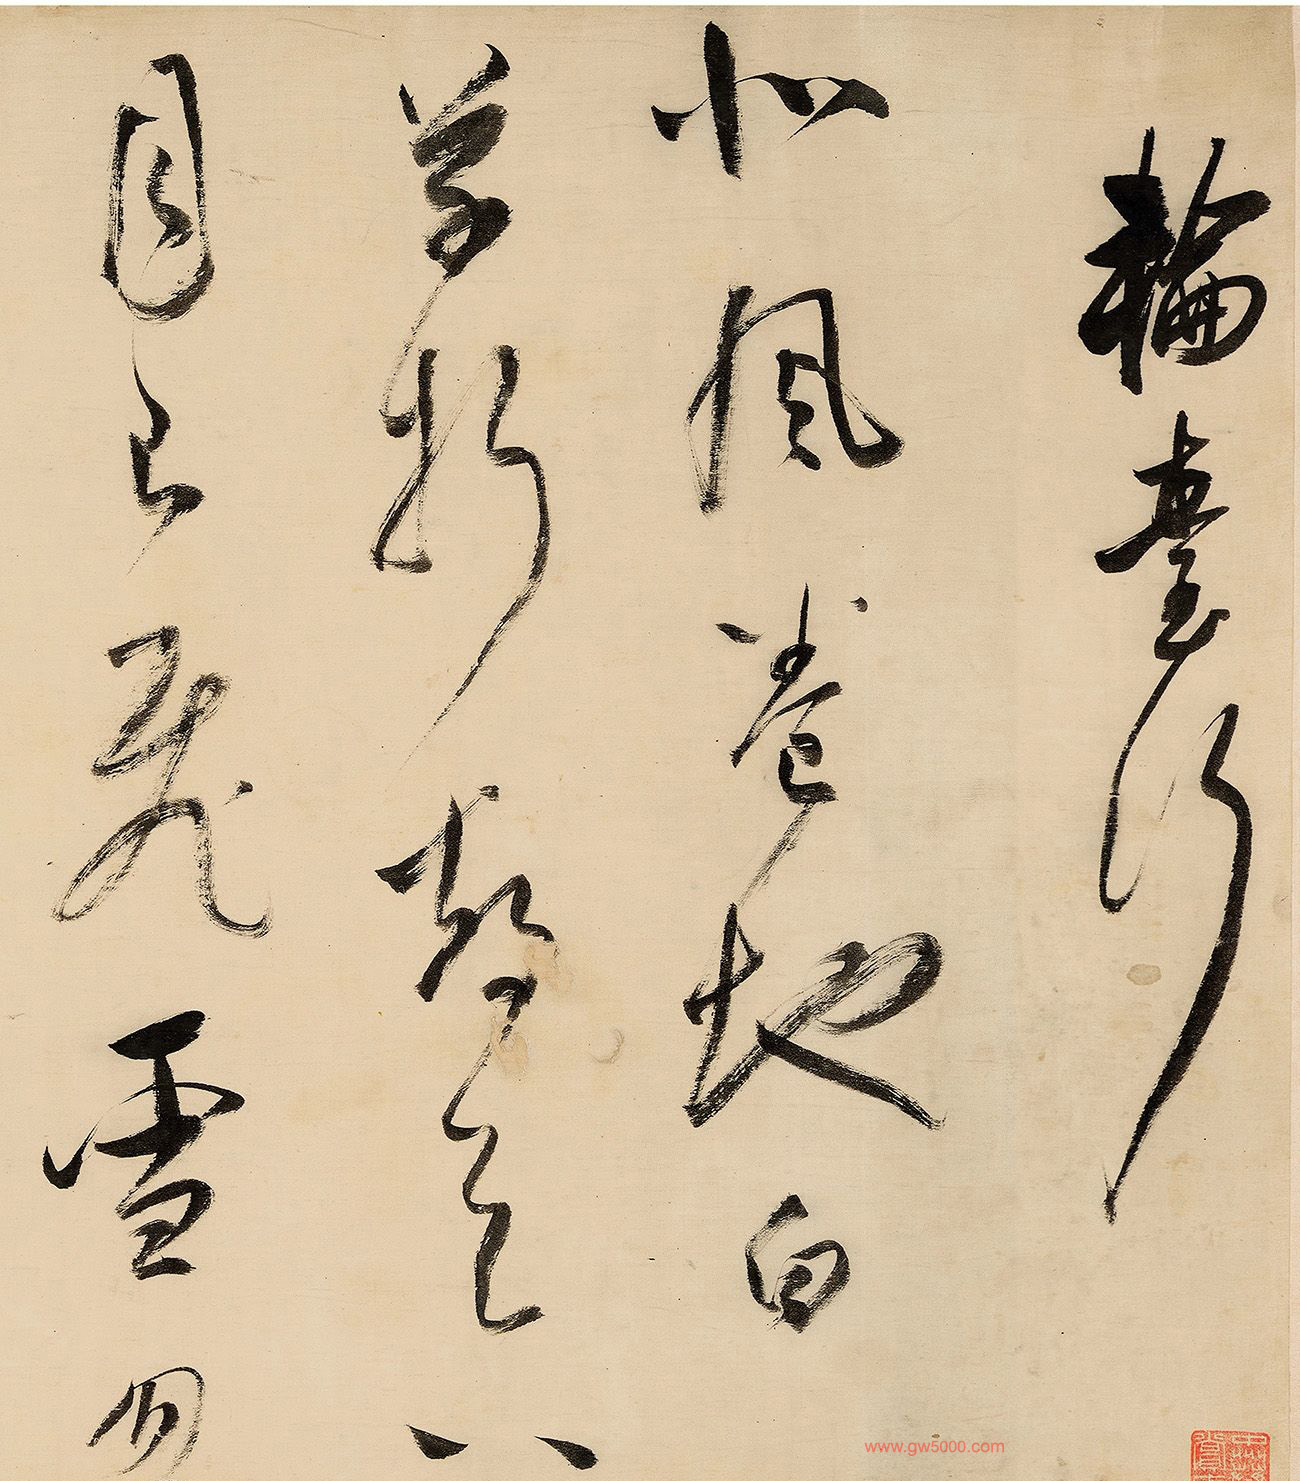 輪臺行
北風卷地白
草折胡天八
月即飛雪
www.gw5000.com